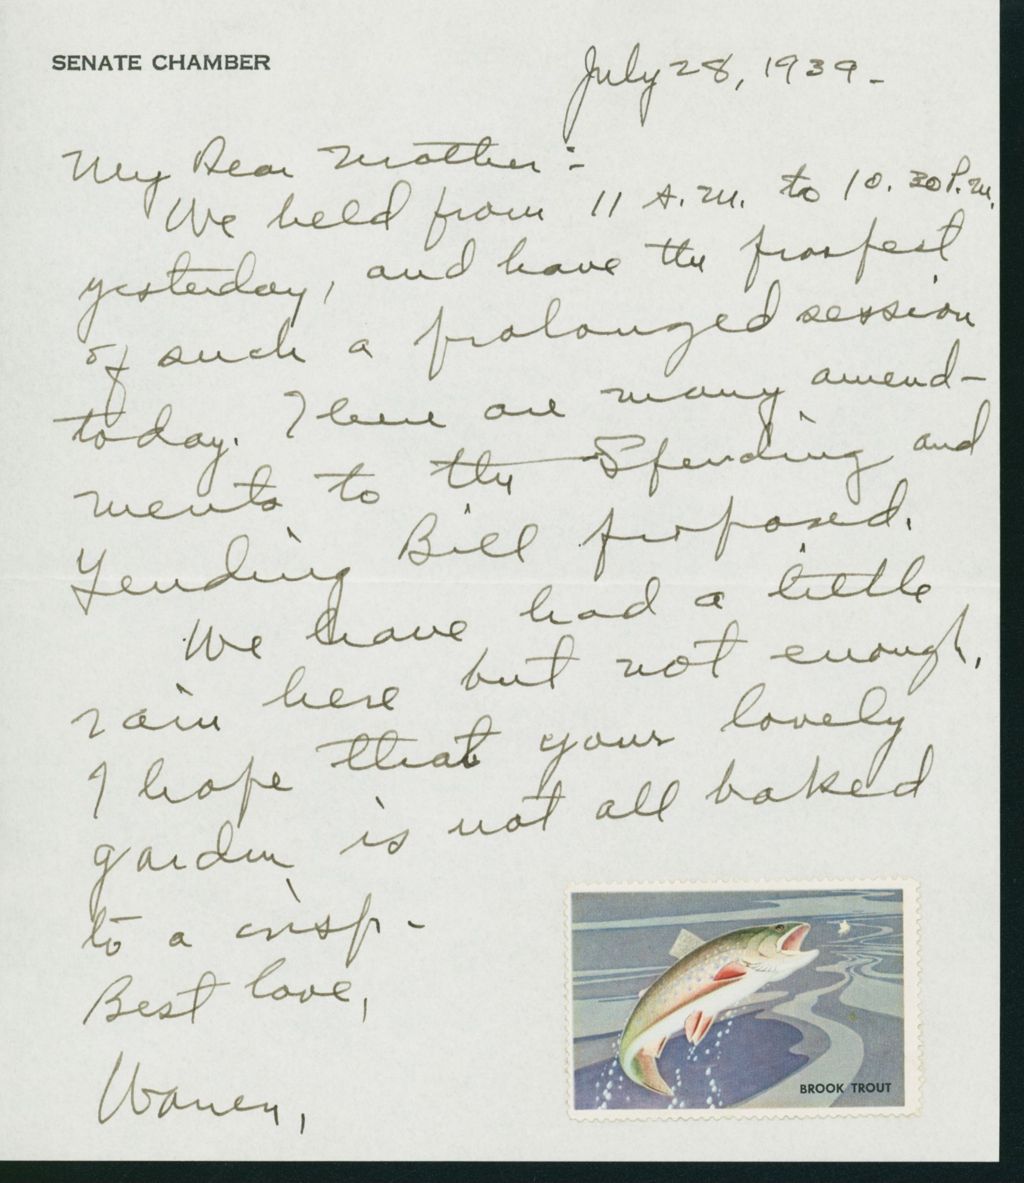 SENATE CHAMBER
July 28, 1939.-
My Dear Mother:-
We held from 11 A.M. to 10.30 P.M.
yesterday, and have the prospect
of such a prolonged session
today. There are many amend-
ments to the Spending and
Lending Bill proposed.
We have had a little
rain here but not enough.
I hope that your lovely
garden is not all baked
to a crisp-
Best love,
Warren,
BROOK TROUT